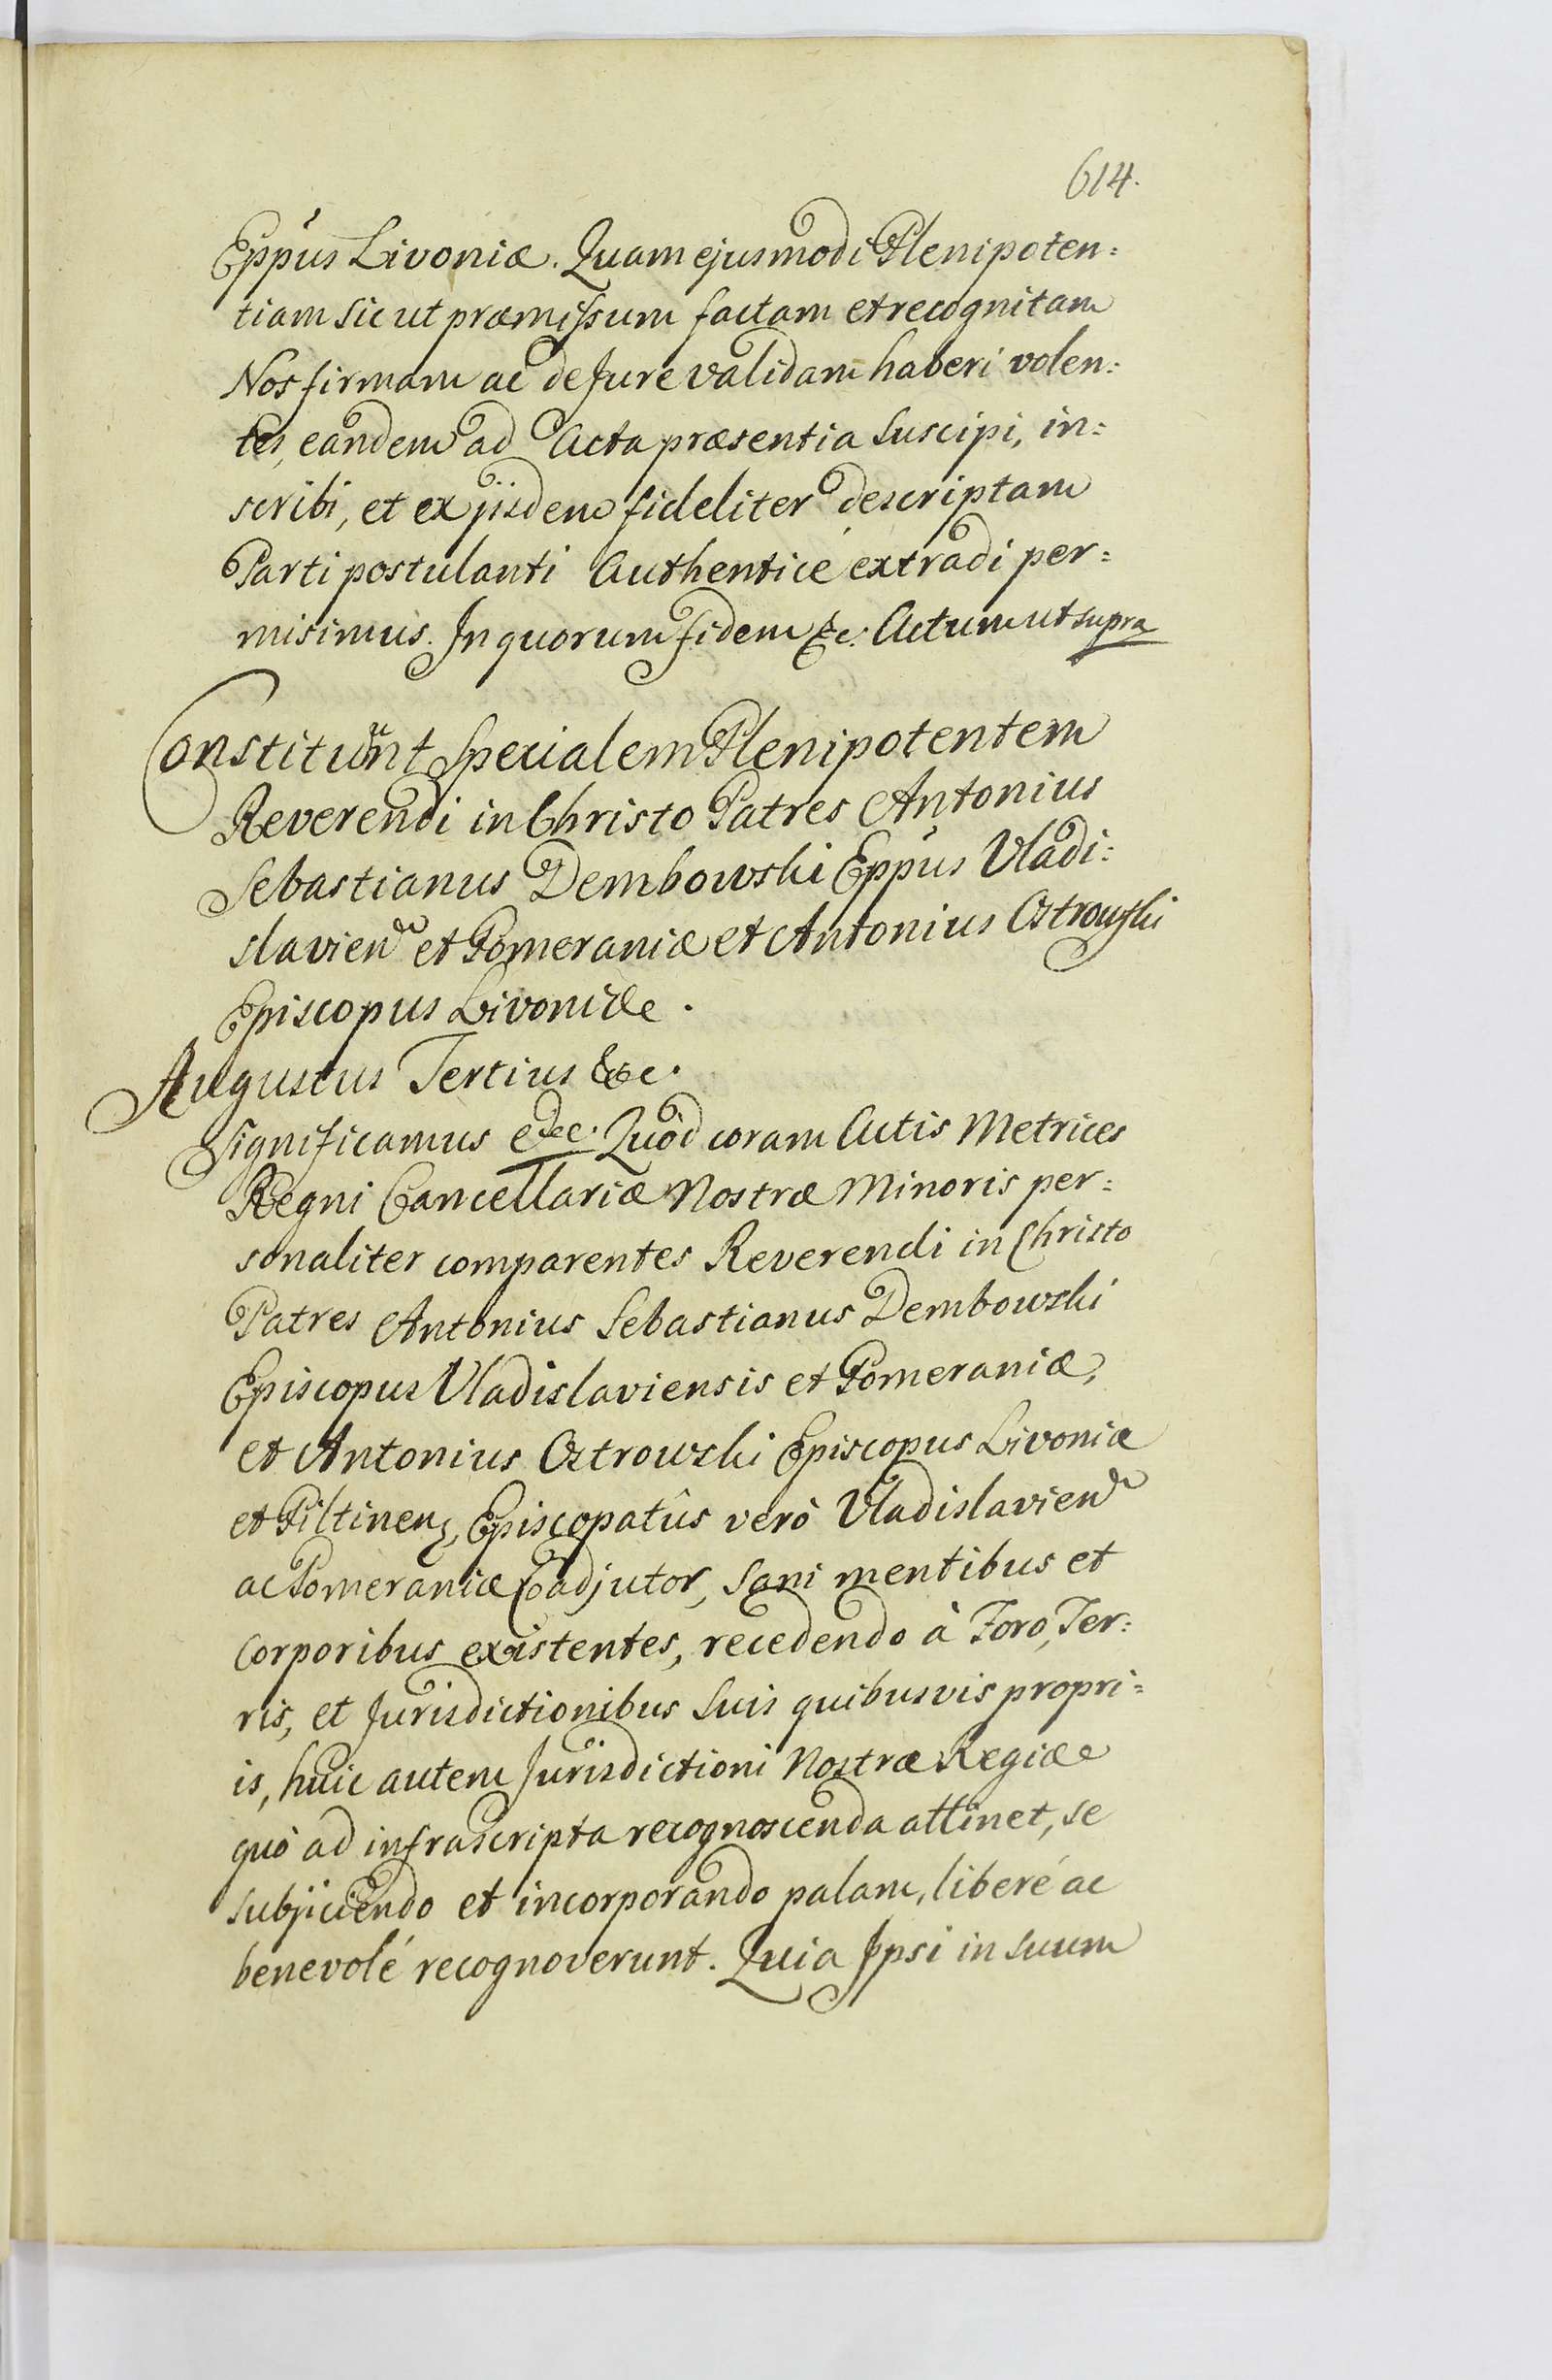 614.
Eppus Livoniæ. Quam ejusmodi Plenipoten:
tiam sic ut præmissum factam et recognitam
Nos firmam ac de Jure validam haberi volen:
tes, eandem ad Acta præsentia suscipi, in:
scribi, et ex ijsdem fideliter descriptam
Parti postulanti Authenticé extradi per:
misimus. In quorum fidem &c: Actum ut supra
Constituunt Specialem Plenipotentem
Reverendi in Christo Patres Antonius
Sebastianus Dembowski Eppus Vladi:
slavien et Pomeraniæ et Antonius Ostrowski
Episcopus Livoniæ.
Augustus Tertius &c.
Significamus &c. Quòd coram Actis Metrices
Regni Cancellariæ Nostræ Minoris per:
sonaliter comparentes Reverendi in Christo
Patres Antonius Sebastianus Dembowski
Episcopus Vladislaviensis et Pomeraniæ,
et Antonius Ostrowski Episcopus Livoniæ
et Piltinen, Episcopatûs verò Vladislavien
ac Pomeraniæ Coadjutor, sani mentibus et
corporibus existentes, recedendo à Foro, Ter:
ris, et Jurisdictionibus suis quibusvis propri:
is, huic autem Jurisdictioni Nostræ Regiæ
quò ad infrascripta recognoscenda attinet, se
subjiciendo et incorporando palam, liberé ac
benevolé recognoverunt. Quia Ipsi in suum